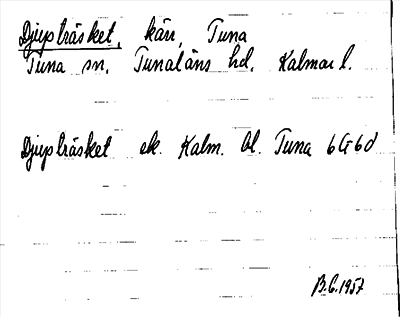 Djupträsket, kärr, Tuna
Tuna sn. Tunaläns hd. Kalmar l.
Djupträsket ek. Kalm. bl. Tuna 6G6d
B.C. 1957